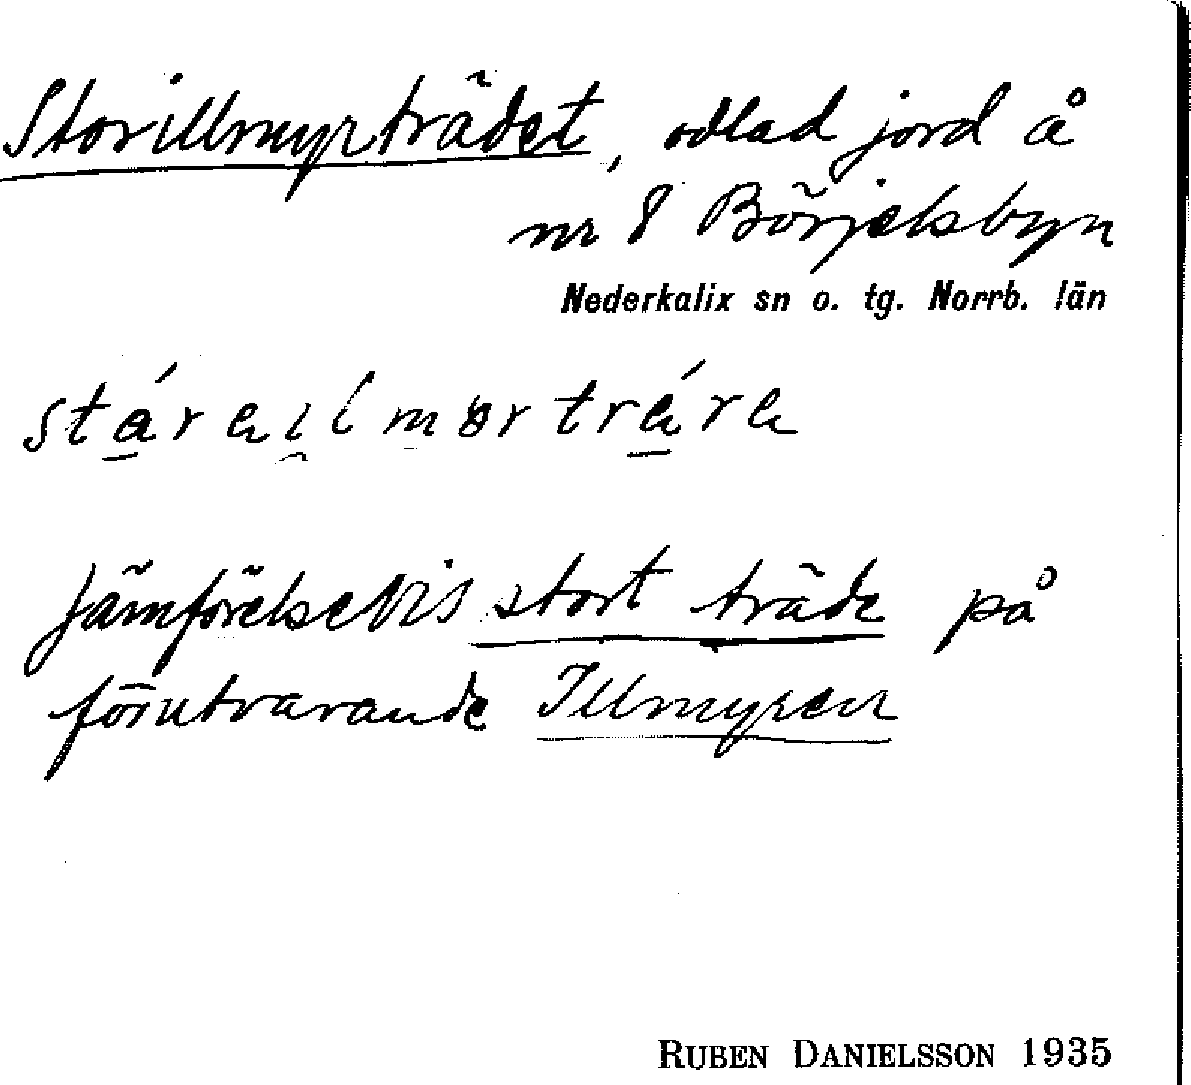 Storillmyrträdet, odlad jord å
nr 8 Börjelsbyn
Nederkalix sn o. tg. Norrb. län
Jämförelsevis stort träde på
förutvarande Illmyren
RUBEN DANIELSSON 1935